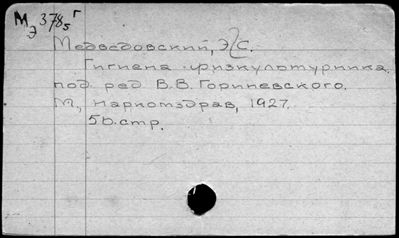 Мэ 378₅ г
Медведовский, Э. С.
Гигиена физкультурника.
под. ред В.В. Гориневского.
М., Наркомздрав, 1927.
50.стр.